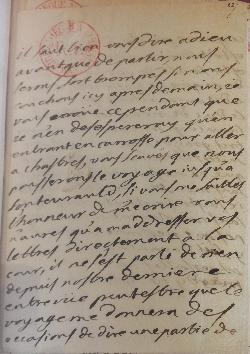 il faut bien vous dire adieu
avant que de partir, nous
serons fort trompes si nous
couchons icy apres demain, ie
vous ecris cependant que
ie n'en desespereray qu'en
entrant en carrosse pour aller
a chastres, vous scaves que nous
pousserons le voyage iusqu'a
fonteurauld, si vous me faittes
l'honneur de m'ecrire vous
n'aures qu'a m'addresser vos
lettres directement a la
cour, il ne s'est parlé de rien
depuis nostre derniere
entreveüe peutestre que le
voyage me donnera des
occasions de dire une partie de